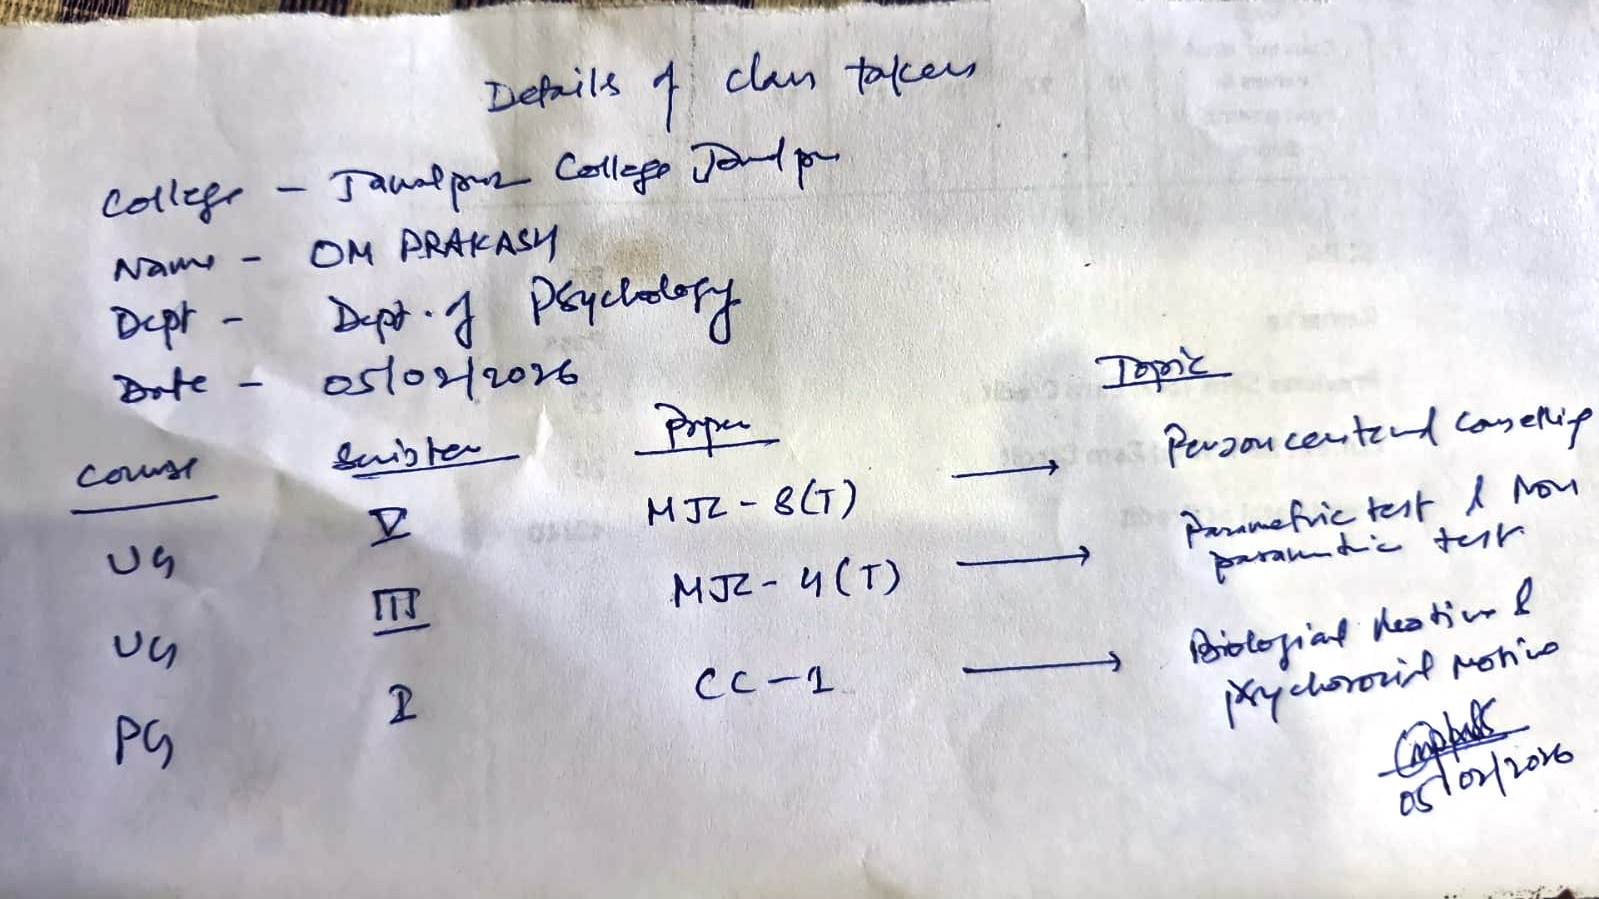 Details of class taken
College - Jamalpur College Jamalpur
Name - OM PRAKASH
Dept - Dept. of Psychology
Date - 05/02/2026
Course Semister Paper Topic
UG V MJC - 8(T) → Person centered Counselling
UG III MJC - 4(T) → Parametric test & Non
parametric test
PG I CC - 1 → Biological Motive &
psychosocial motive
05/02/2026